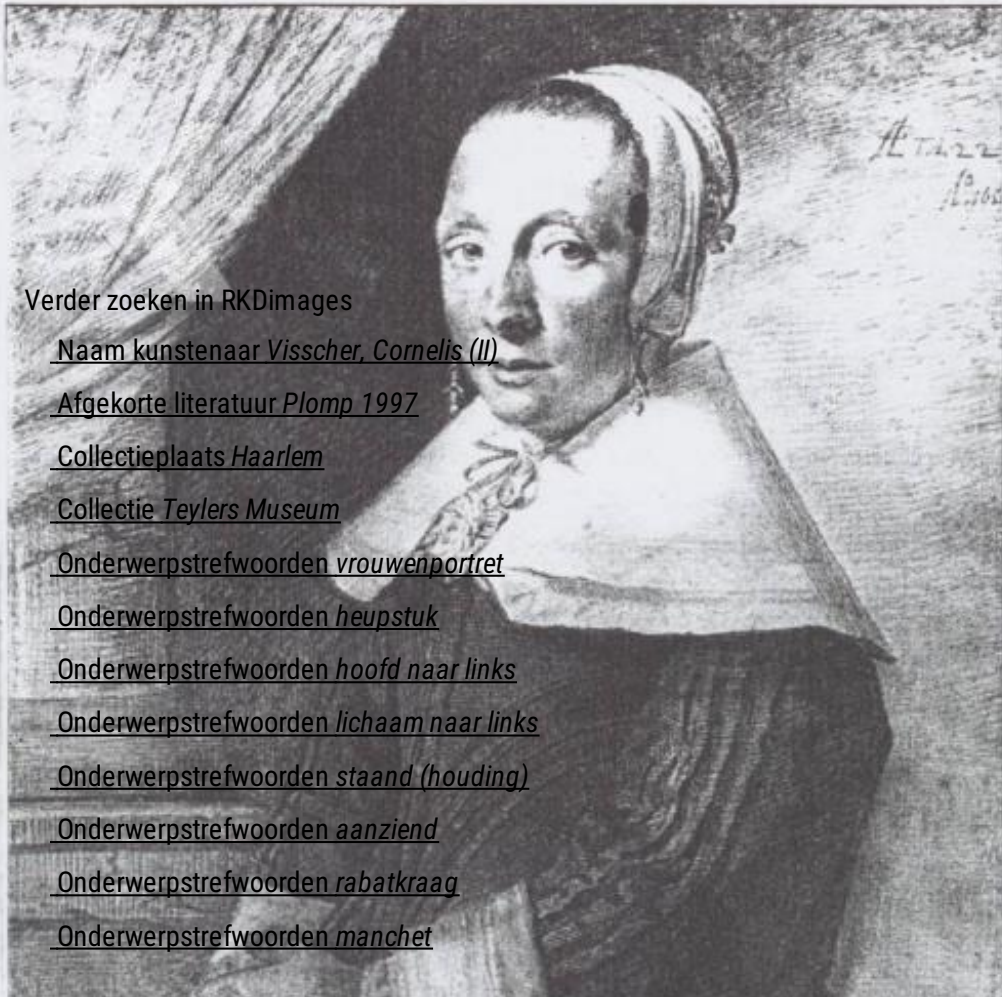 Verder zoeken in RKDimages
Naam kunstenaar Visscher, Cornelis (II)
Afgekorte literatuur Plomp 1997
Collectieplaats Haarlem
Collectie Teylers Museum
Onderwerpstrefwoorden vrouwenportret
Onderwerpstrefwoorden heupstuk
Onderwerpstrefwoorden hoofd naar links
Onderwerpstrefwoorden lichaam naar links
Onderwerpstrefwoorden staand (houding)
Onderwerpstrefwoorden aanziend
Onderwerpstrefwoorden rabatkraag
Onderwerpstrefwoorden manchet